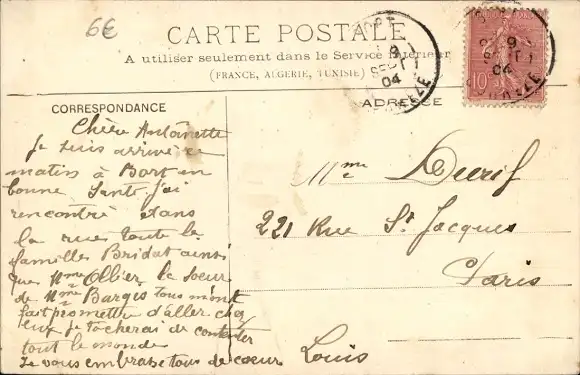 6€
CARTE POSTALE
A utiliser seulement dans le Service Intérieur
(FRANCE, ALGERIE, TUNISIE)
9
SEPT
04
CORREZE
9
SEPT
04
10
CORRESPONDANCE
ADRESSE
Chère Antoinette
je suis arrivé ce
matin à Bort en
bonne Santé j'ai
rencontré dans
la rue toute la
familles Bridat ainsi
que Mme Ollier la Soeur
de Mme Barges tous m'ont
fait promettre d'aller chez
eux je tacherai de contenter
tout le monde
Je vous embrasse tous de coeur
Louis
Mme Durif
221 Rue St Jacques
Paris